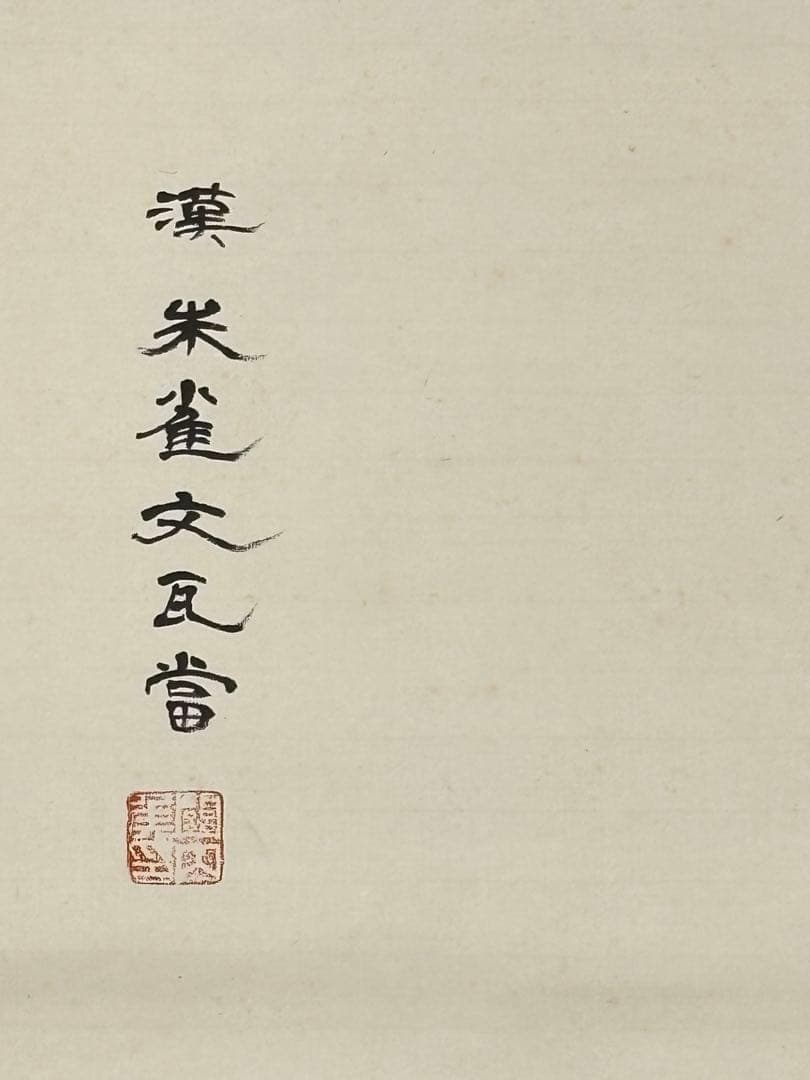 漢 朱雀文瓦當